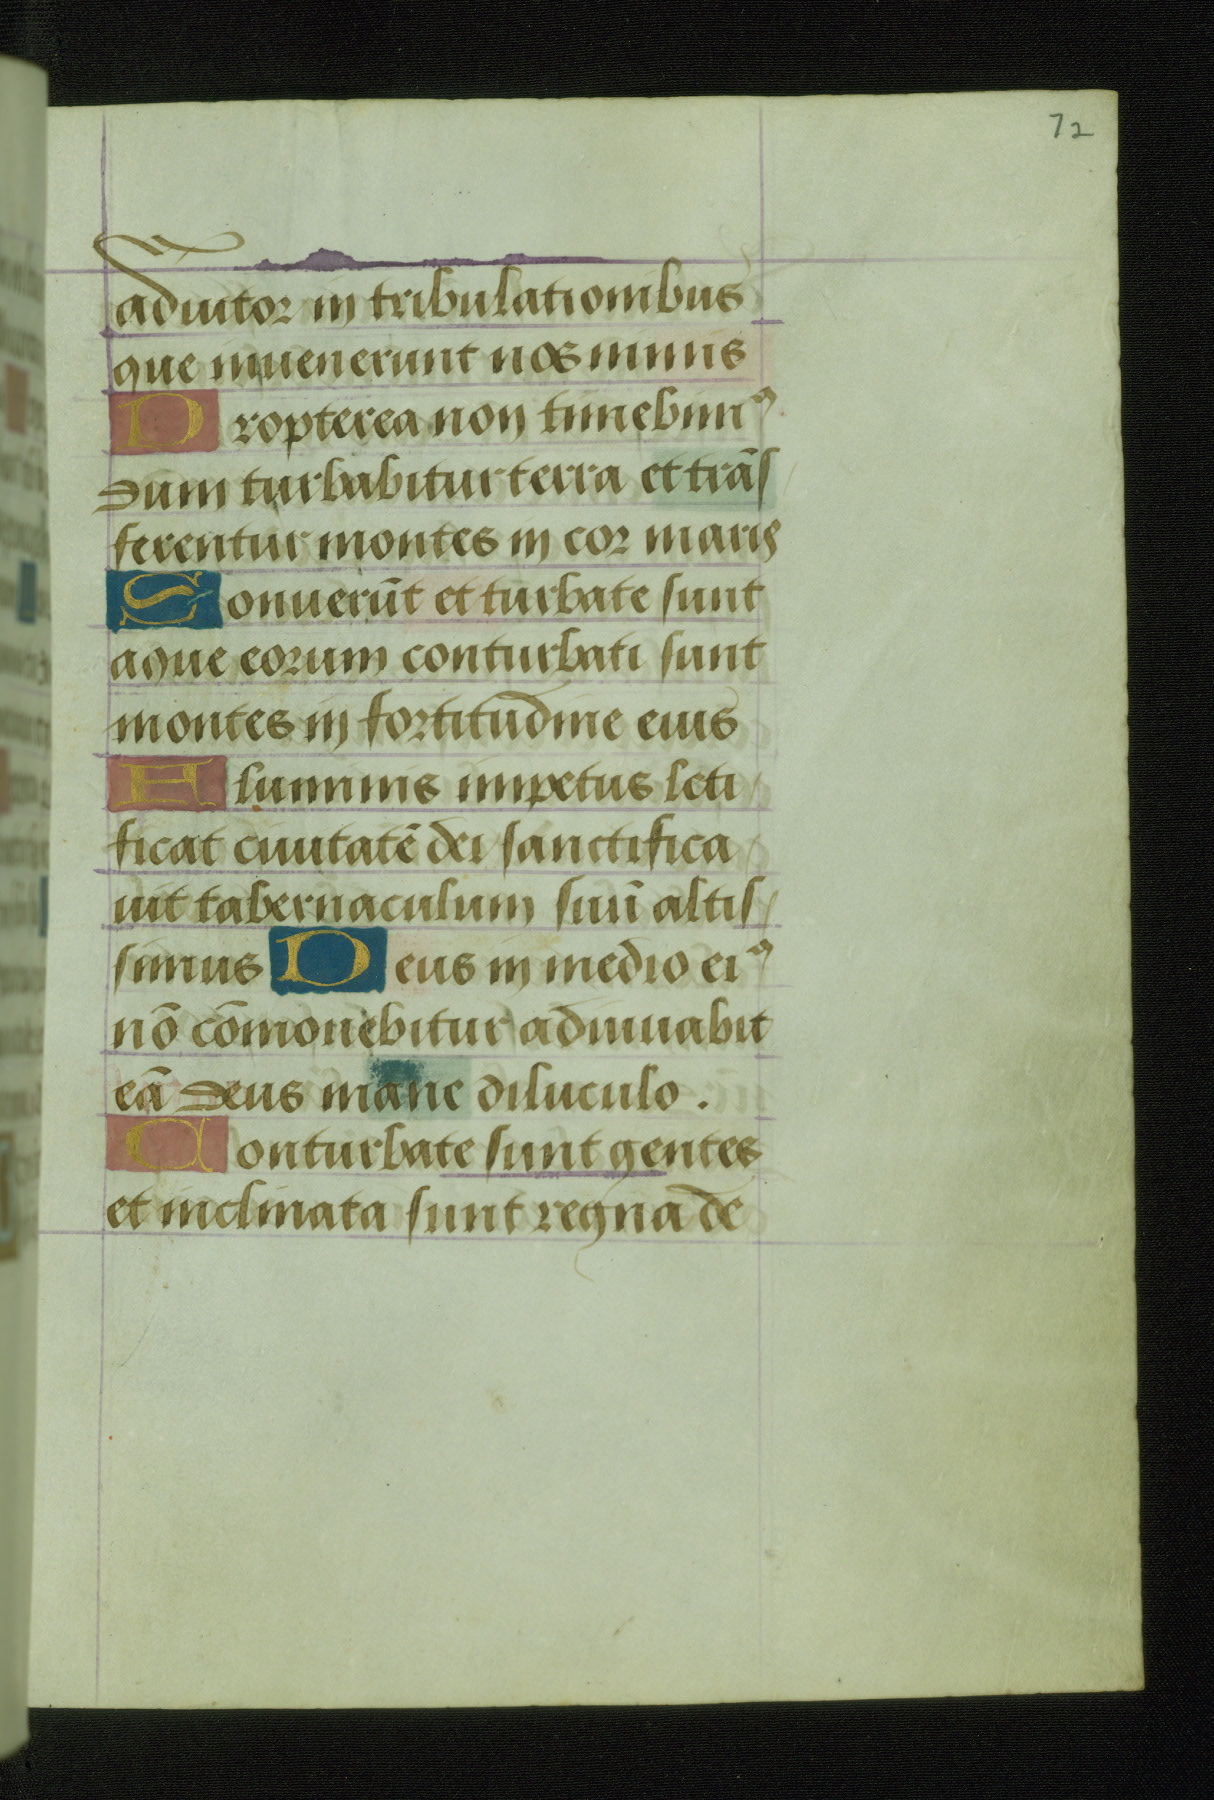 72
adiutor in tribulationibus
que inuenerunt nos nimis
Propterea non timebimꝰ
dum turbabitur terra et trās
ferentur montes in cor maris
Sonuerūt et turbate sunt
aque eorum conturbati sunt
montes in fortitudine eius
Fluminis impetus leti
ficat ciuitatē dei sanctifica
uit tabernaculum suū altis
simus Deus in medio eiꝰ
nō cōmouebitur adiuuabit
eā deus mane diluculo .
Conturbate sunt gentes
et inclinata sunt regna de